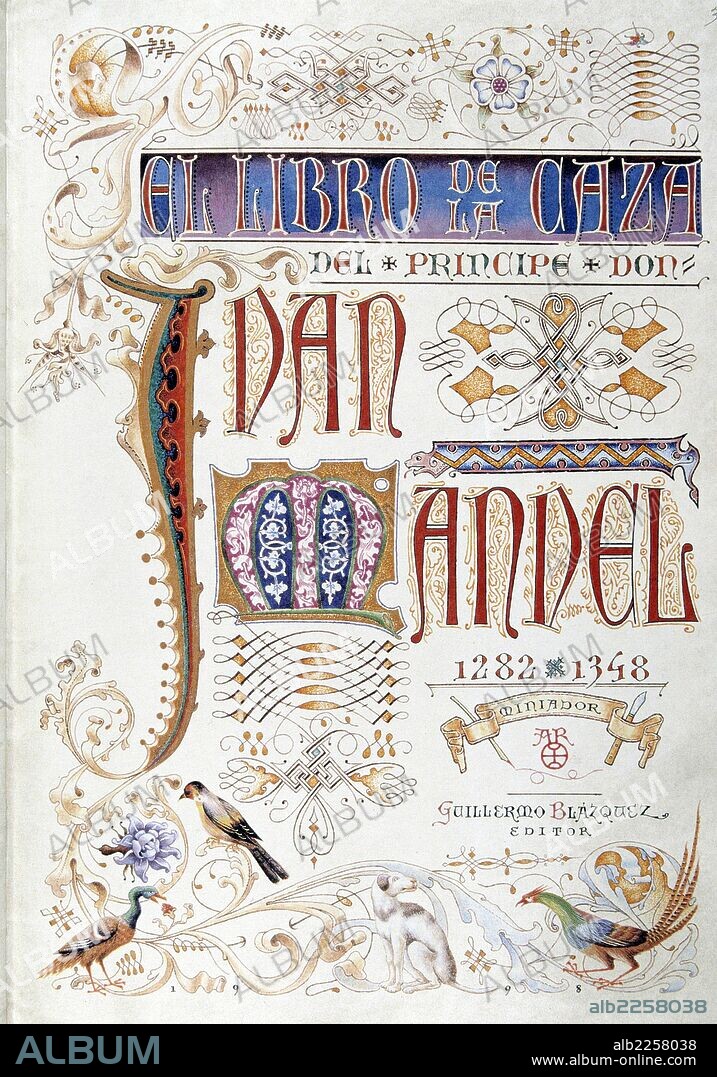 EL LIBRO DE LA CAZA
DEL PRINCIPE DON
IVAN
MANVEL
1282 1348
MINIADOR
AR
GUILLERMO BLÁZQUEZ
EDITOR
1 9 9 8
alb2258038
ALBUM
alb2258038
www.album-online.com